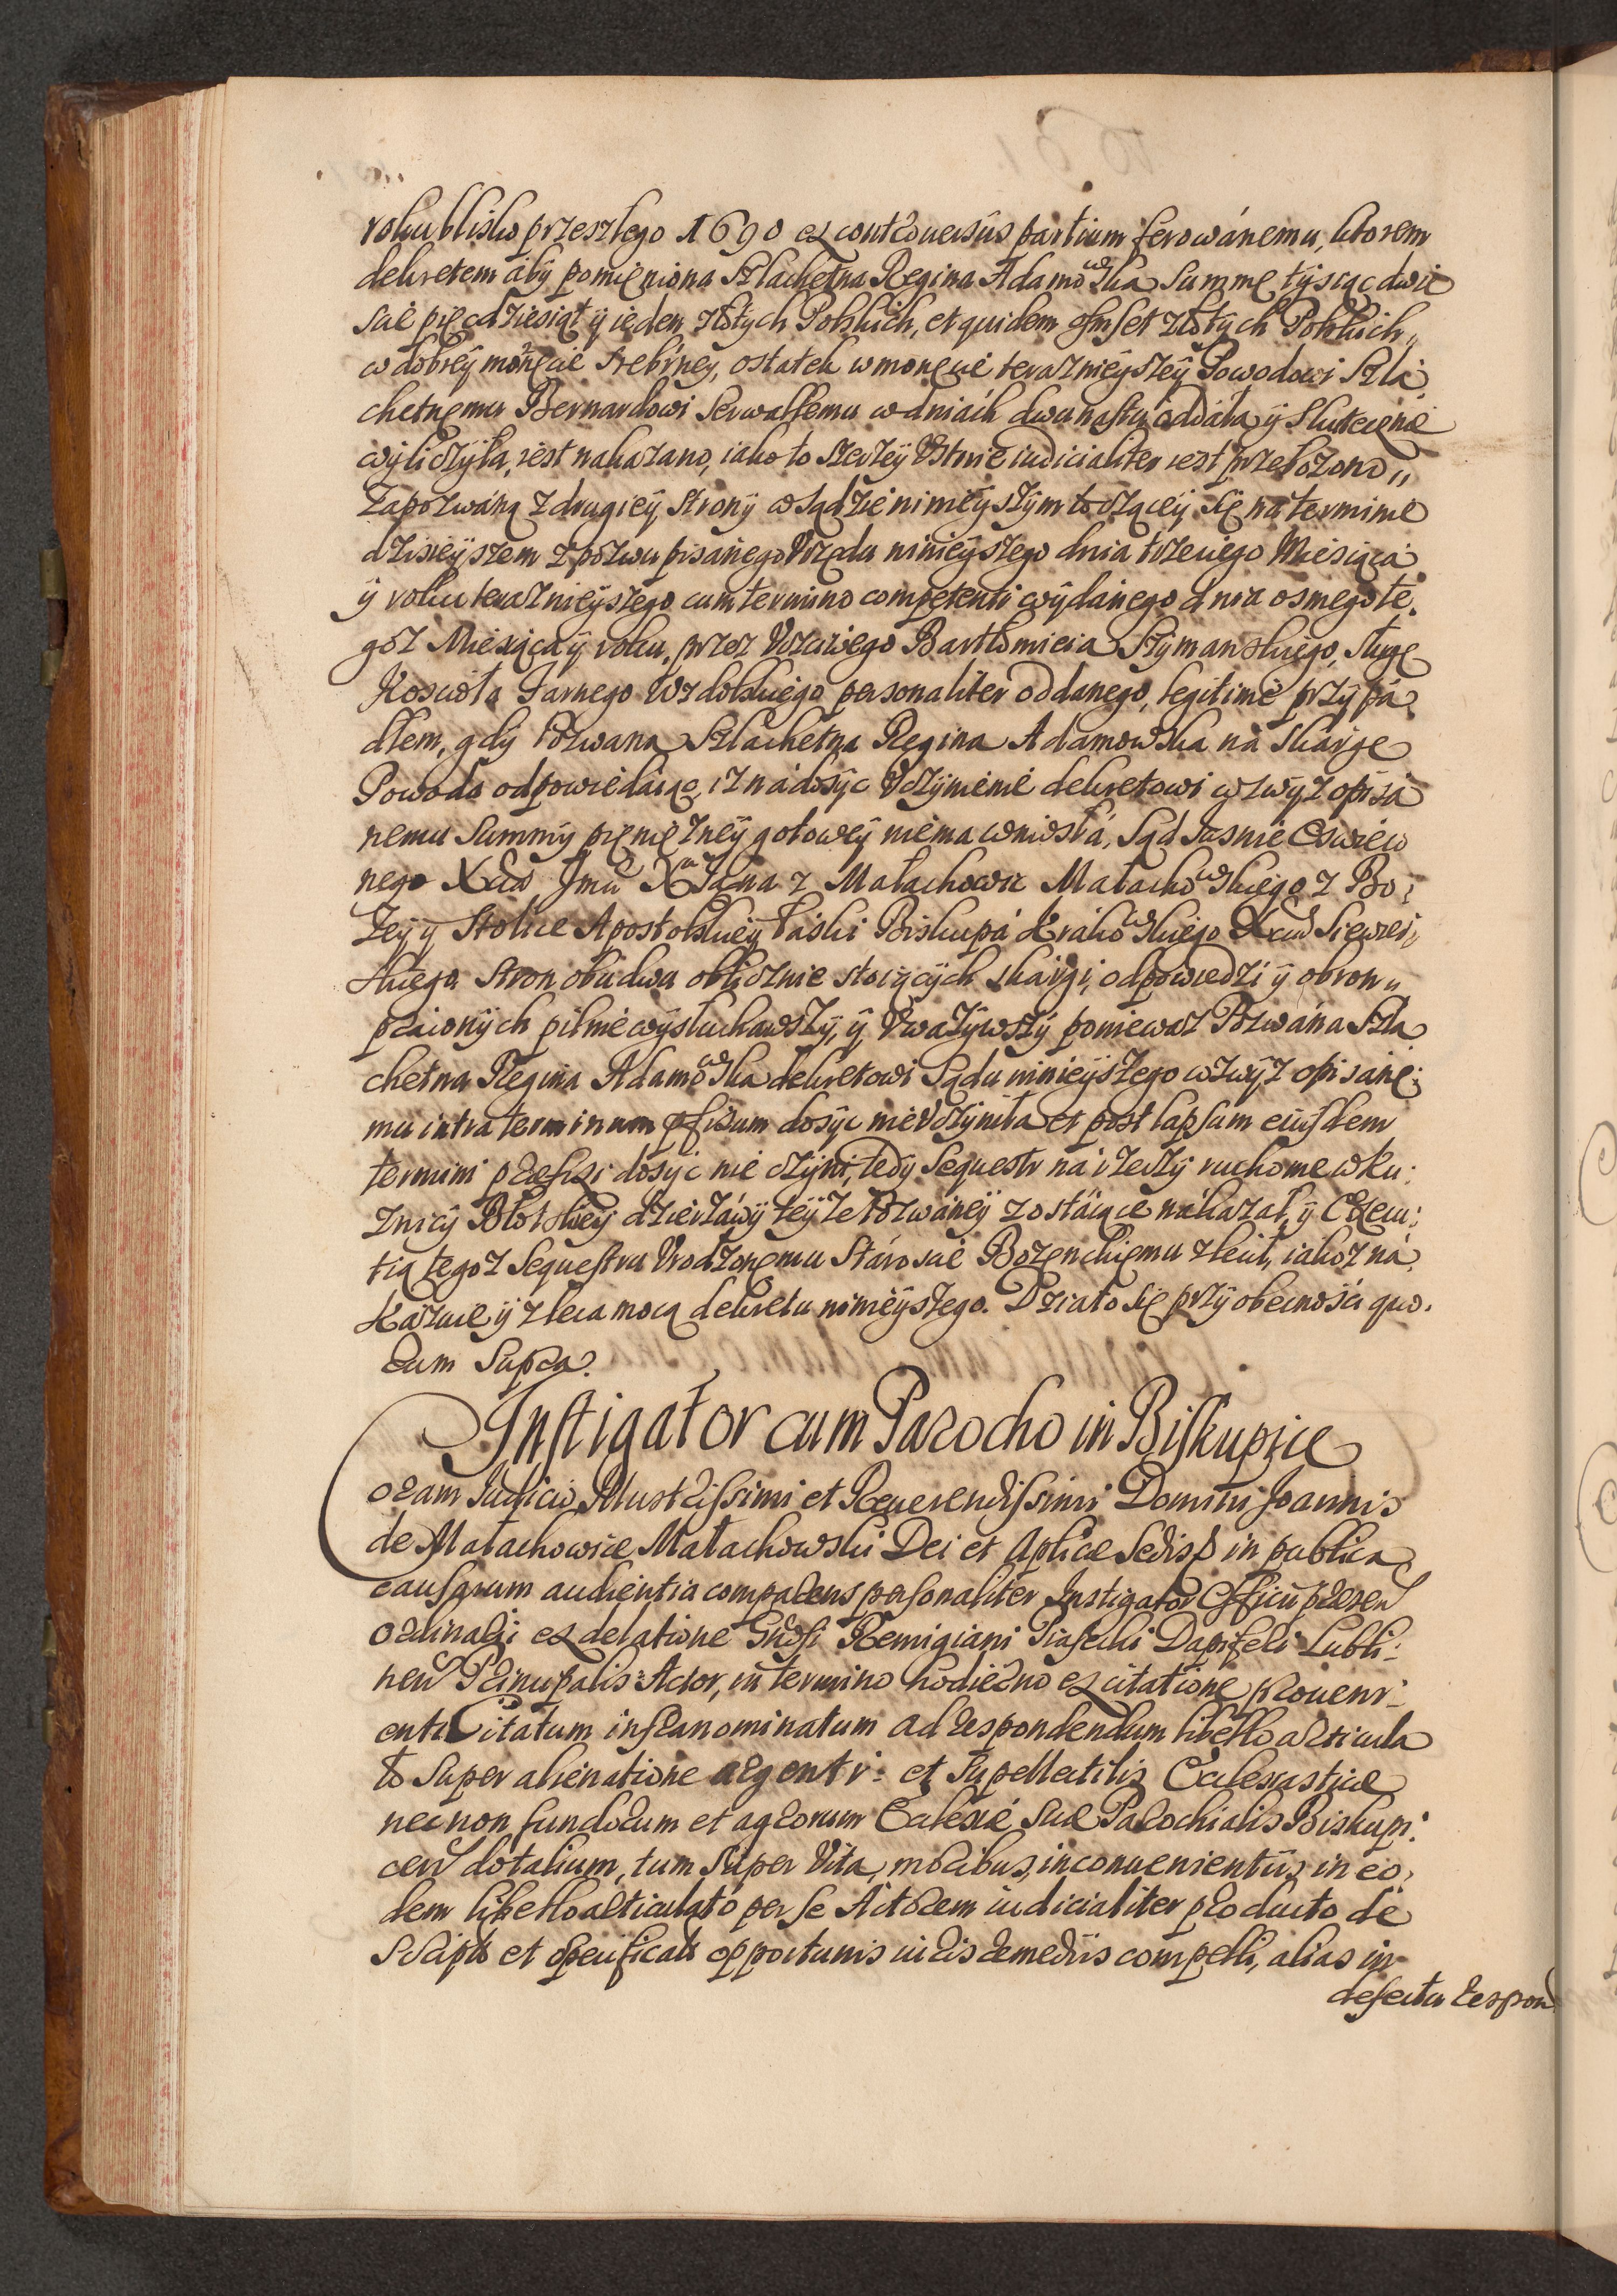 roku blisko przeszłego 1690 ex controuersiis partium ferowánemu, ktorem
dekretem áby pomięniona Szlachetna Regina Adamowska Summę tysiąc dwie
scie pięcdziesiąt ÿ ieden złotych Polskich, et quidem osmset złotych Polskich
w dobrey monęcie srebrney, ostatek w monęcie teraznieyszeÿ Powodowi Szlá
chetnęmu Bernardowi Serwattemu w dniách dwunastu oddáła ÿ skutecznie
wyliczyła, iest nakazano, iako to szerzeÿ Vstnie iudicialiter iest przełozono
Zapozwáną z drugieÿ strony w sądzie ninieyszym toczącey się na terminie
dzisieyszem z pozwu pisánego Vrzędu ninieyszego dnia trzeciego Miesiącá
ÿ roku teraznieyszego cum termino competenti wydánego dnia osmego te
goz Miesiącá ÿ roku, przez Vczciwego Bartłomieia Szymanskiego, sługę
Koscioła Farnego Wzdolskiego personaliter oddanego, legitime przypá
dłem, gdy Pozwana Szlachetna Regina Adamowska ná skárgę
Powoda odpowiedáiąc, iz ná dosyc Vczynienie dekretowi wzwyz opisá
nemu Summy pięnięzneÿ gotoweÿ niema wniosłá, Sąd Jasnie Oswieco
nego Xcia Jmci Xa Jana z Małachowic Małachowskiego z Bo
zeÿ ÿ Stolice Apostolskieÿ łáski Biskupá Krakowskiego Xcia Siewier
skiego stron obudwu oblicznie stoiących skárgi, odpowiedzi ÿ obron
práwnych pilnie wysłuchawszy, ÿ Vwazywszy poniewaz Pozwána Szla
chetna Regina Adamowska dekretowi Sądu ninieyszego wzwyz opisáne
mu intra terminum pfixum dosyc nie Vczyniła et post lapsum eiusdem
termini præfixi dosyc nie czyni, tedÿ Sequestr ná rzeczy ruchome w Ku
znicy Błotskieÿ dzierzáwÿ teyze Pozwáneÿ zostáiące nákazał, ÿ Execu
tią tegoz Sequestru Vrodzonęmu Stárosćie Bozenckiemu zlecił, iakoz ná
kázuie ÿ zleca mocą dekretu ninieyszego. Działo się przy obecnosci quo
rum supra.
Instigator cum Parocho in Biskupice
Coram Iudicio Illustrissimi et Reuerendissimi Domini Joannis
de Małachowice Małachowski Dei et Aplicæ Sedis p in publica
causarum audientia comparens personaliter Instigator Officii præsen
ordinarii ex delatione Gnosi Remigiani Piasecki Dapiferi Lubli
nen Principalis Actor, in termino hodierno ex citatione proueni
ente Citatum infranominatum ad respondendum libello articula
to super alienatione argenti et supellectilis Ecclesiasticæ
nec non fundorum et agrorum Ecclesiæ suæ Parochialis Biskupi
cen dotalium, tum super Vita, moribus, inconuenientiis in eo
dem libello articulato per se Actorem iudicialiter producto de
scriptis et specificatis opportunis iuris remediis compelli, alias in
defectu respon